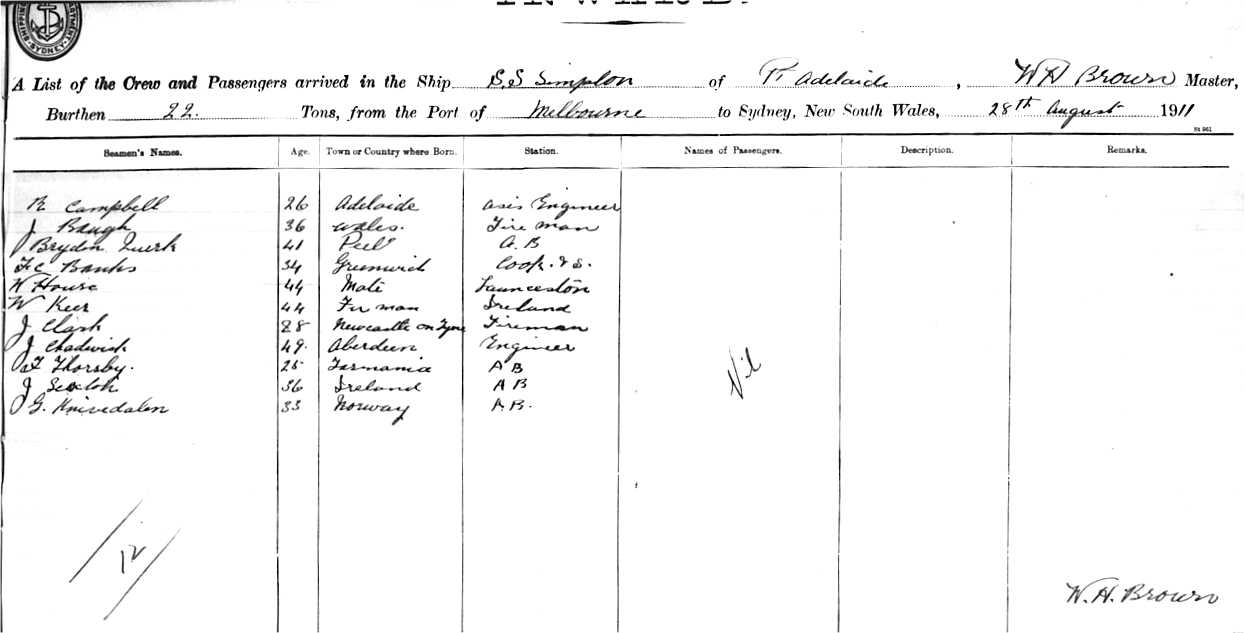 SHIPPING DEPARTMENT. SYDNEY
INWARD.
A List of the Crew and Passengers arrived in the Ship S.S Simplon of Pt Adelaide, W H Brown Master,
Burthen 22. Tons, from the Port of Melbourne to Sydney, New South Wales, 28th August 1911
St 961
Seamen's Names. Age. Town or Country where Born. Station. Names of Passengers. Description. Remarks.
R Campbell 26 Adelaide asis Engineer
J Baugh 36 Wales. Fire man
Brydon Quirk 41 Peel A.B
F.C Banks 34 Greenwich Cook. & S.
W House 44 Mate Launceston
W Keer 44 Fir man Ireland
J Clark 28 Newcastle on Tyne Fireman
J Chadwick 49. Aberdeen Engineer
F Thorsby. 25 Tasmania A B
J 36 Ireland A B
G. Knivedalen 33 Norway A.B.
Nil
/12/
W.H. Brown